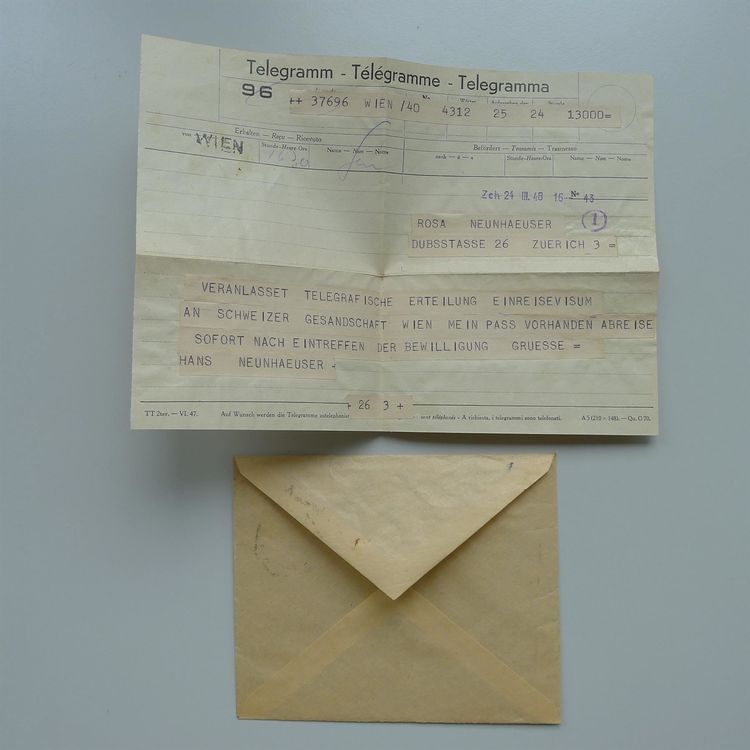 Telegramm - Télégramme - Telegramma
96
++ 37696 WIEN /40 4312 25 24 13000=
Erhalten — Reçu — Ricevuto
Befördert — Transmis — Trasmesso
von WIEN
Stunde-Heure-Ora Name — Nom — Nome
nach — à — a Stunde-Heure-Ora Name — Nom — Nome
1630
Zch 24 III. 48 16 Nº 43
ROSA NEUNHAEUSER 1
DUBSSTASSE 26 ZUERICH 3 =
VERANLASSET TELEGRAFISCHE ERTEILUNG EINREISEVISUM
AN SCHWEIZER GESANDSCHAFT WIEN MEIN PASS VORHANDEN ABREISE
SOFORT NACH EINTREFFEN DER BEWILLIGUNG GRUESSE =
HANS NEUNHAEUSER +
+ 26 3 +
TT 2ter. — VI. 47. Auf Wunsch werden die Telegramme zutelephoniert sont téléphonés - A richiesta, i telegrammi sono telefonati. A 5 (210 × 148). — Qu. O 70.